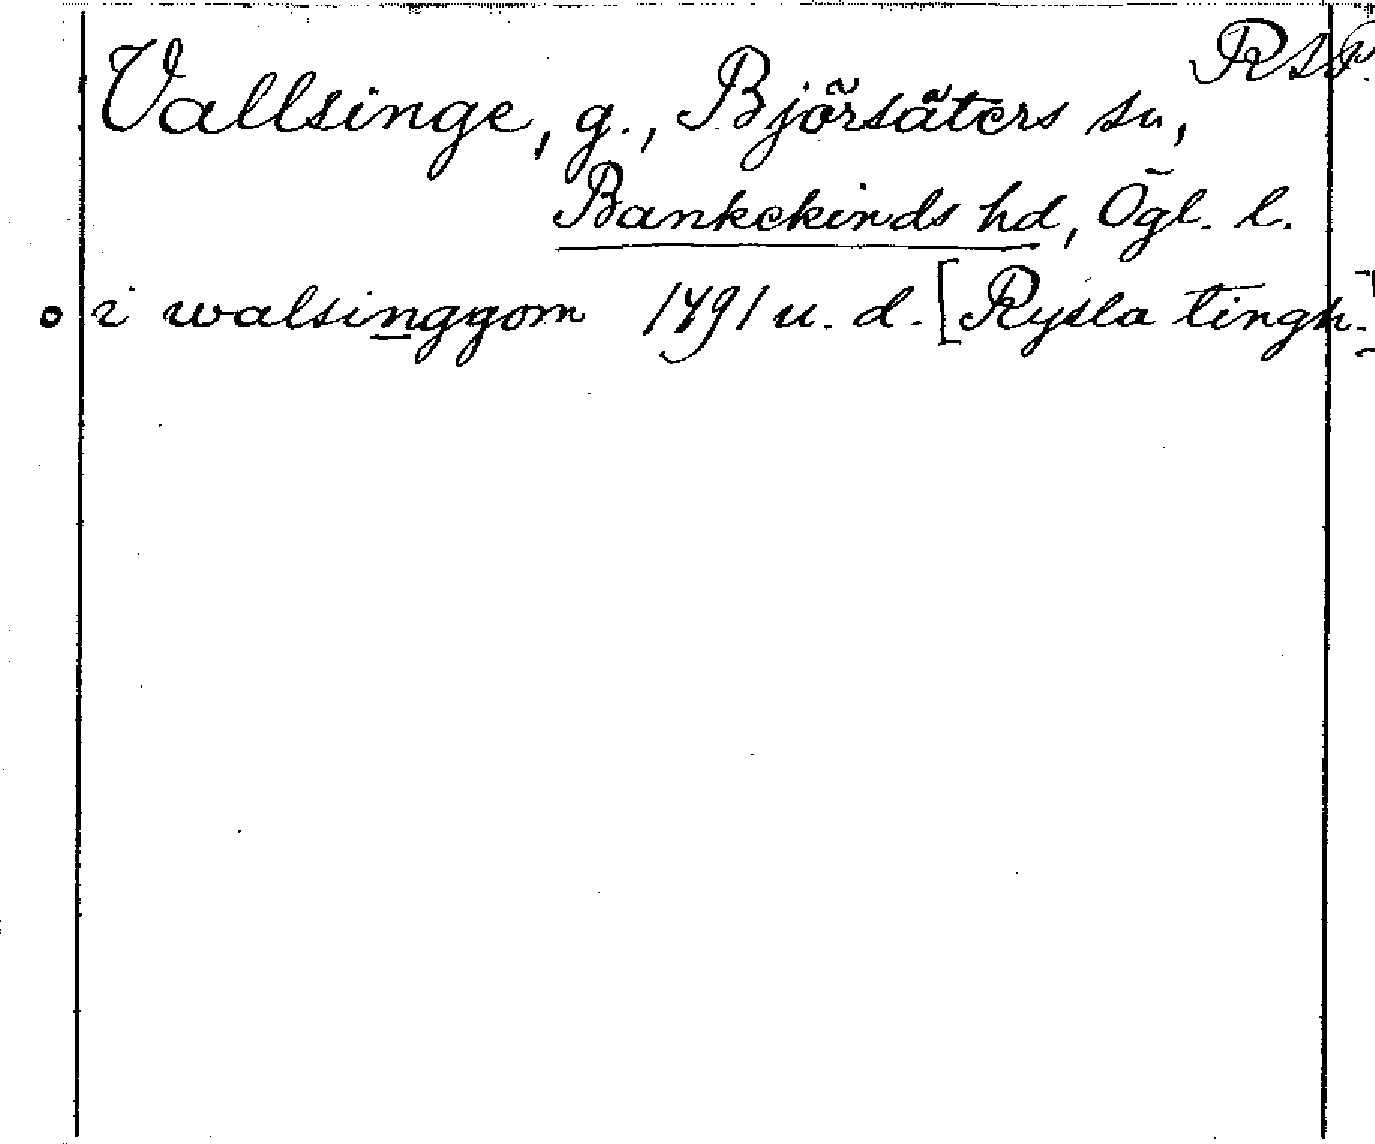 RAP.
Vallsinge, g., Björsäters sn,
Bankekinds hd, Ögl. l.
o i walsinggom 1491 u. d. [Rysla tingh.]